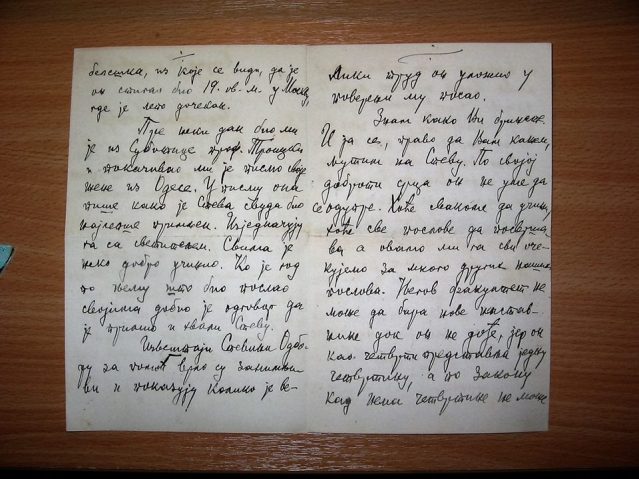 белешка, из које се види, да је
он стигао био 19. ов. м. у Москву,
где је лепо дочекан.
Пре неки дан био ми
је из Суботице проф.
и показивао ми је писмо своје
жене из Одесе. У писму она
пише како је Стева свуда био
најлепше примљен. Изједначују
га са светитељем. Свима је
неко добро учинио. Ко је год
по њему што био послао
својима добио је одговор да
је примио и хвали Стеву.
Извештаји Стевини Одбо-
ру за помоћ врло су занимљи-
ви и показују колико је ве-
лики труд он уложио у
поверени му посао.
Знам како Ви бринете.
И ја се, право да Вам кажем,
љутим на Стеву. По својој
доброти срца он не уме да
се одупре. Хоће свакоме да учини,
хоће све послове да посврша-
ва а овамо ми га сви оче-
кујемо за много других наших
послова. Његов факултет не
може да бира нове настав-
нике док он не дође, јер он
као четврти представља једну
четвртину, а по Закону
кад нема четвртине не може